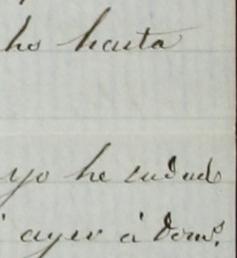 ho hasta
yo he cuidado
ayer á Dom.º